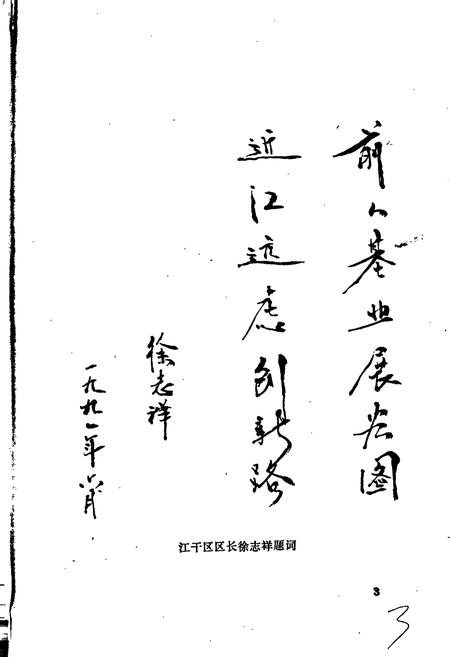 前人基业展宏图
近江远虑创新路
徐志祥
一九九一年八月
江干区区长徐志祥题词
3
3